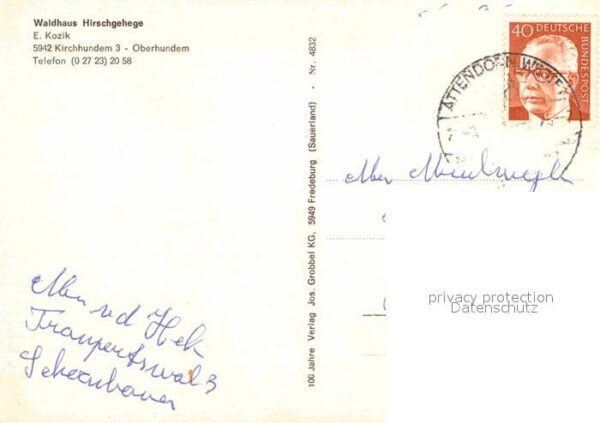 Waldhaus Hirschgehege
E. Kozik
5942 Kirchhundem 3 - Oberhundem
Telefon (0 27 23) 20 58
100 Jahre Verlag Jos. Grobbel KG, 5949 Fredeburg (Sauerland) · Nr. 4832
40 DEUTSCHE BUNDESPOST
ATTENDORN
privacy protection
Datenschutz
v d Hek